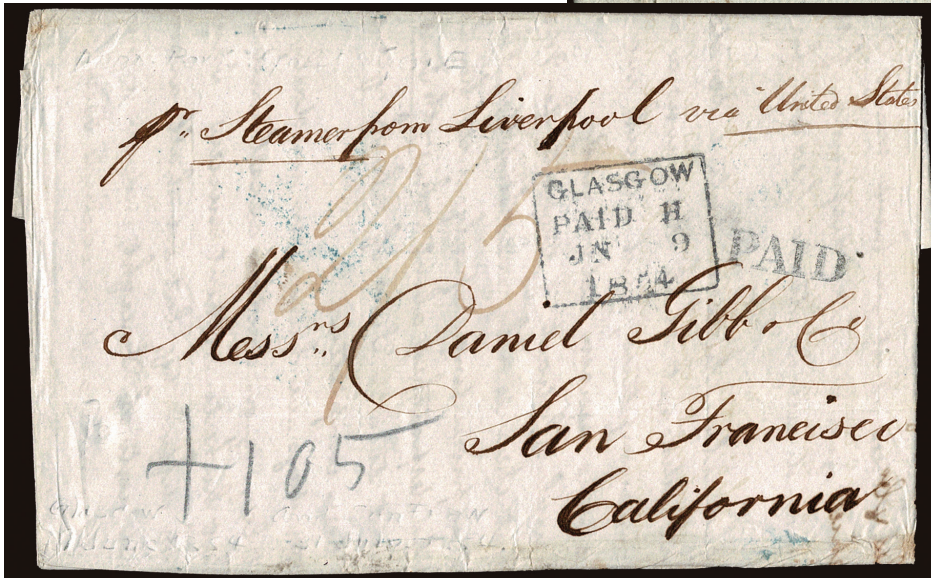 pr. Steamer from Liverpool via United States
2/5
GLASGOW
PAID H
JN 9
1854
PAID
Messrs Daniel Gibb & Co
San Francisco
California
+105